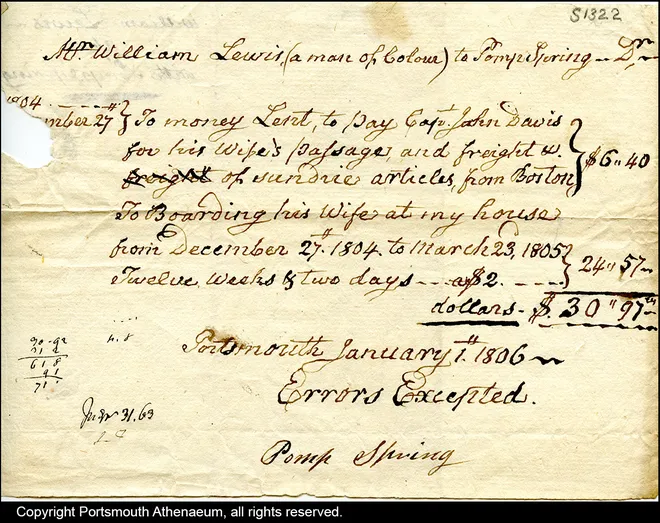 S1322
Mr. William Lewis, (a man of Colour) to Pomp Spring — Dr
1804
mber 27th } To money Lent, to pay Capt. John Davis
for his Wife's passage, and freight &c. } $6"40
freight of sundrie articles, from Boston
To Boarding his Wife at my house
from December 27th. 1804. to March 23, 1805 } 24"57
Twelve Weeks & two days — a $2.
dollars - $. 30"97
Portsmouth January 1st. 1806
Errors Excepted.
Pomp Spring
618
31.63
Copyright Portsmouth Athenaeum, all rights reserved.